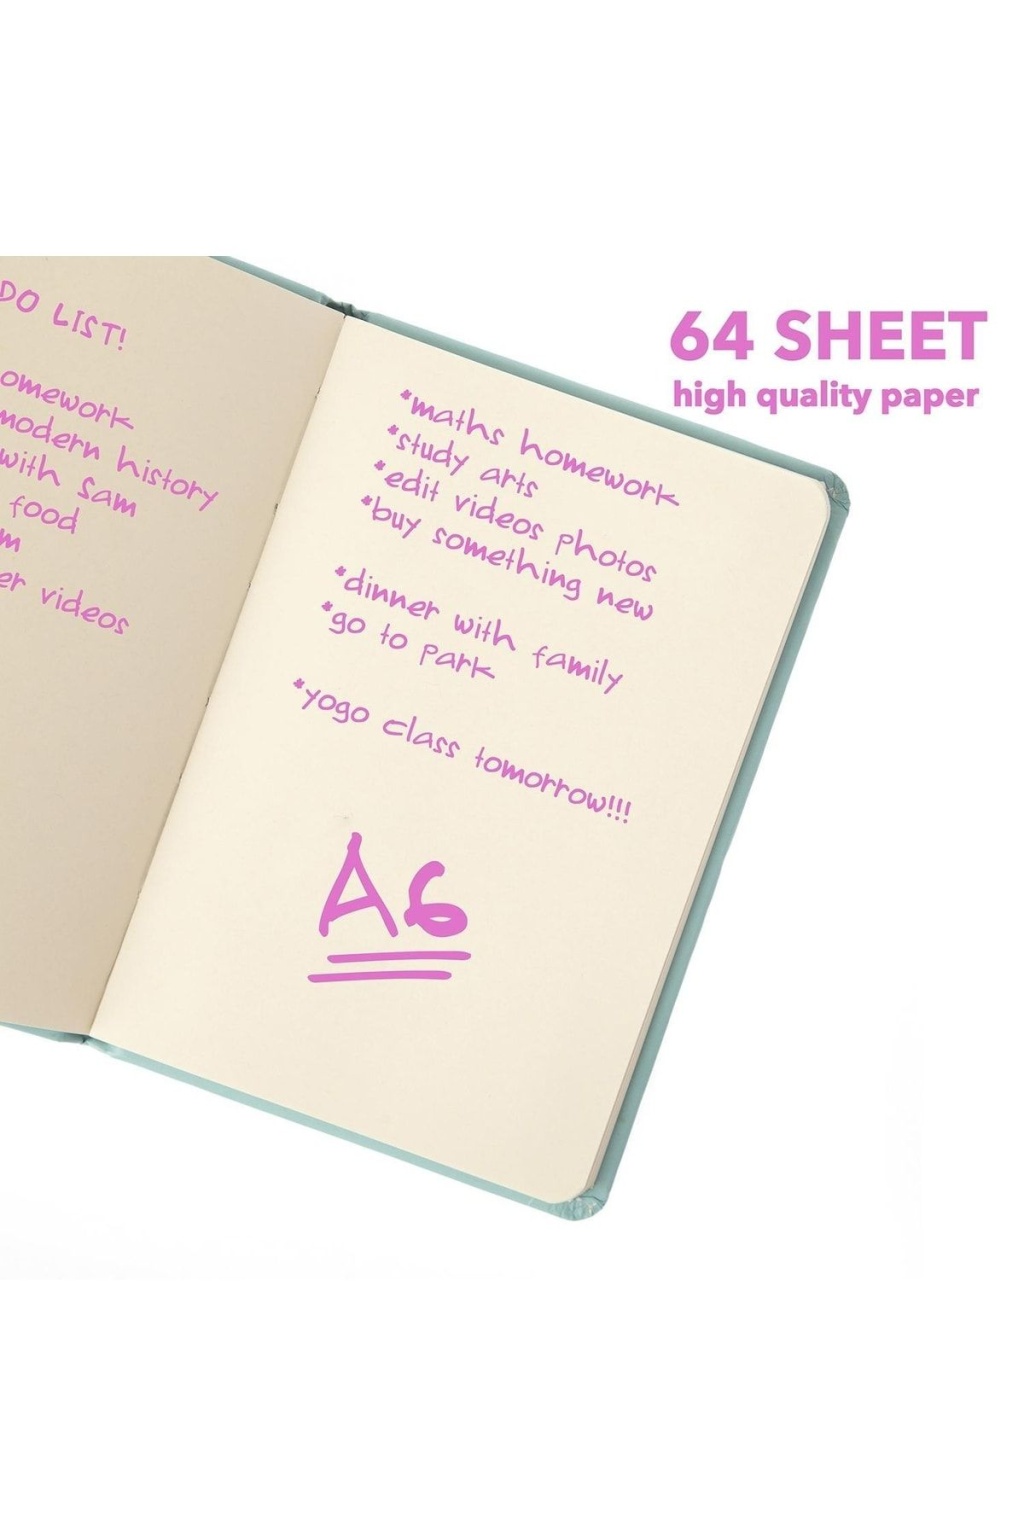 DO LIST!
omework
modern history
with sam
food
m
er videos
64 SHEET
high quality paper
*maths homework
*study arts
*edit videos photos
*buy something new
*dinner with family
*go to park
*yogo class tomorrow!!!
A6